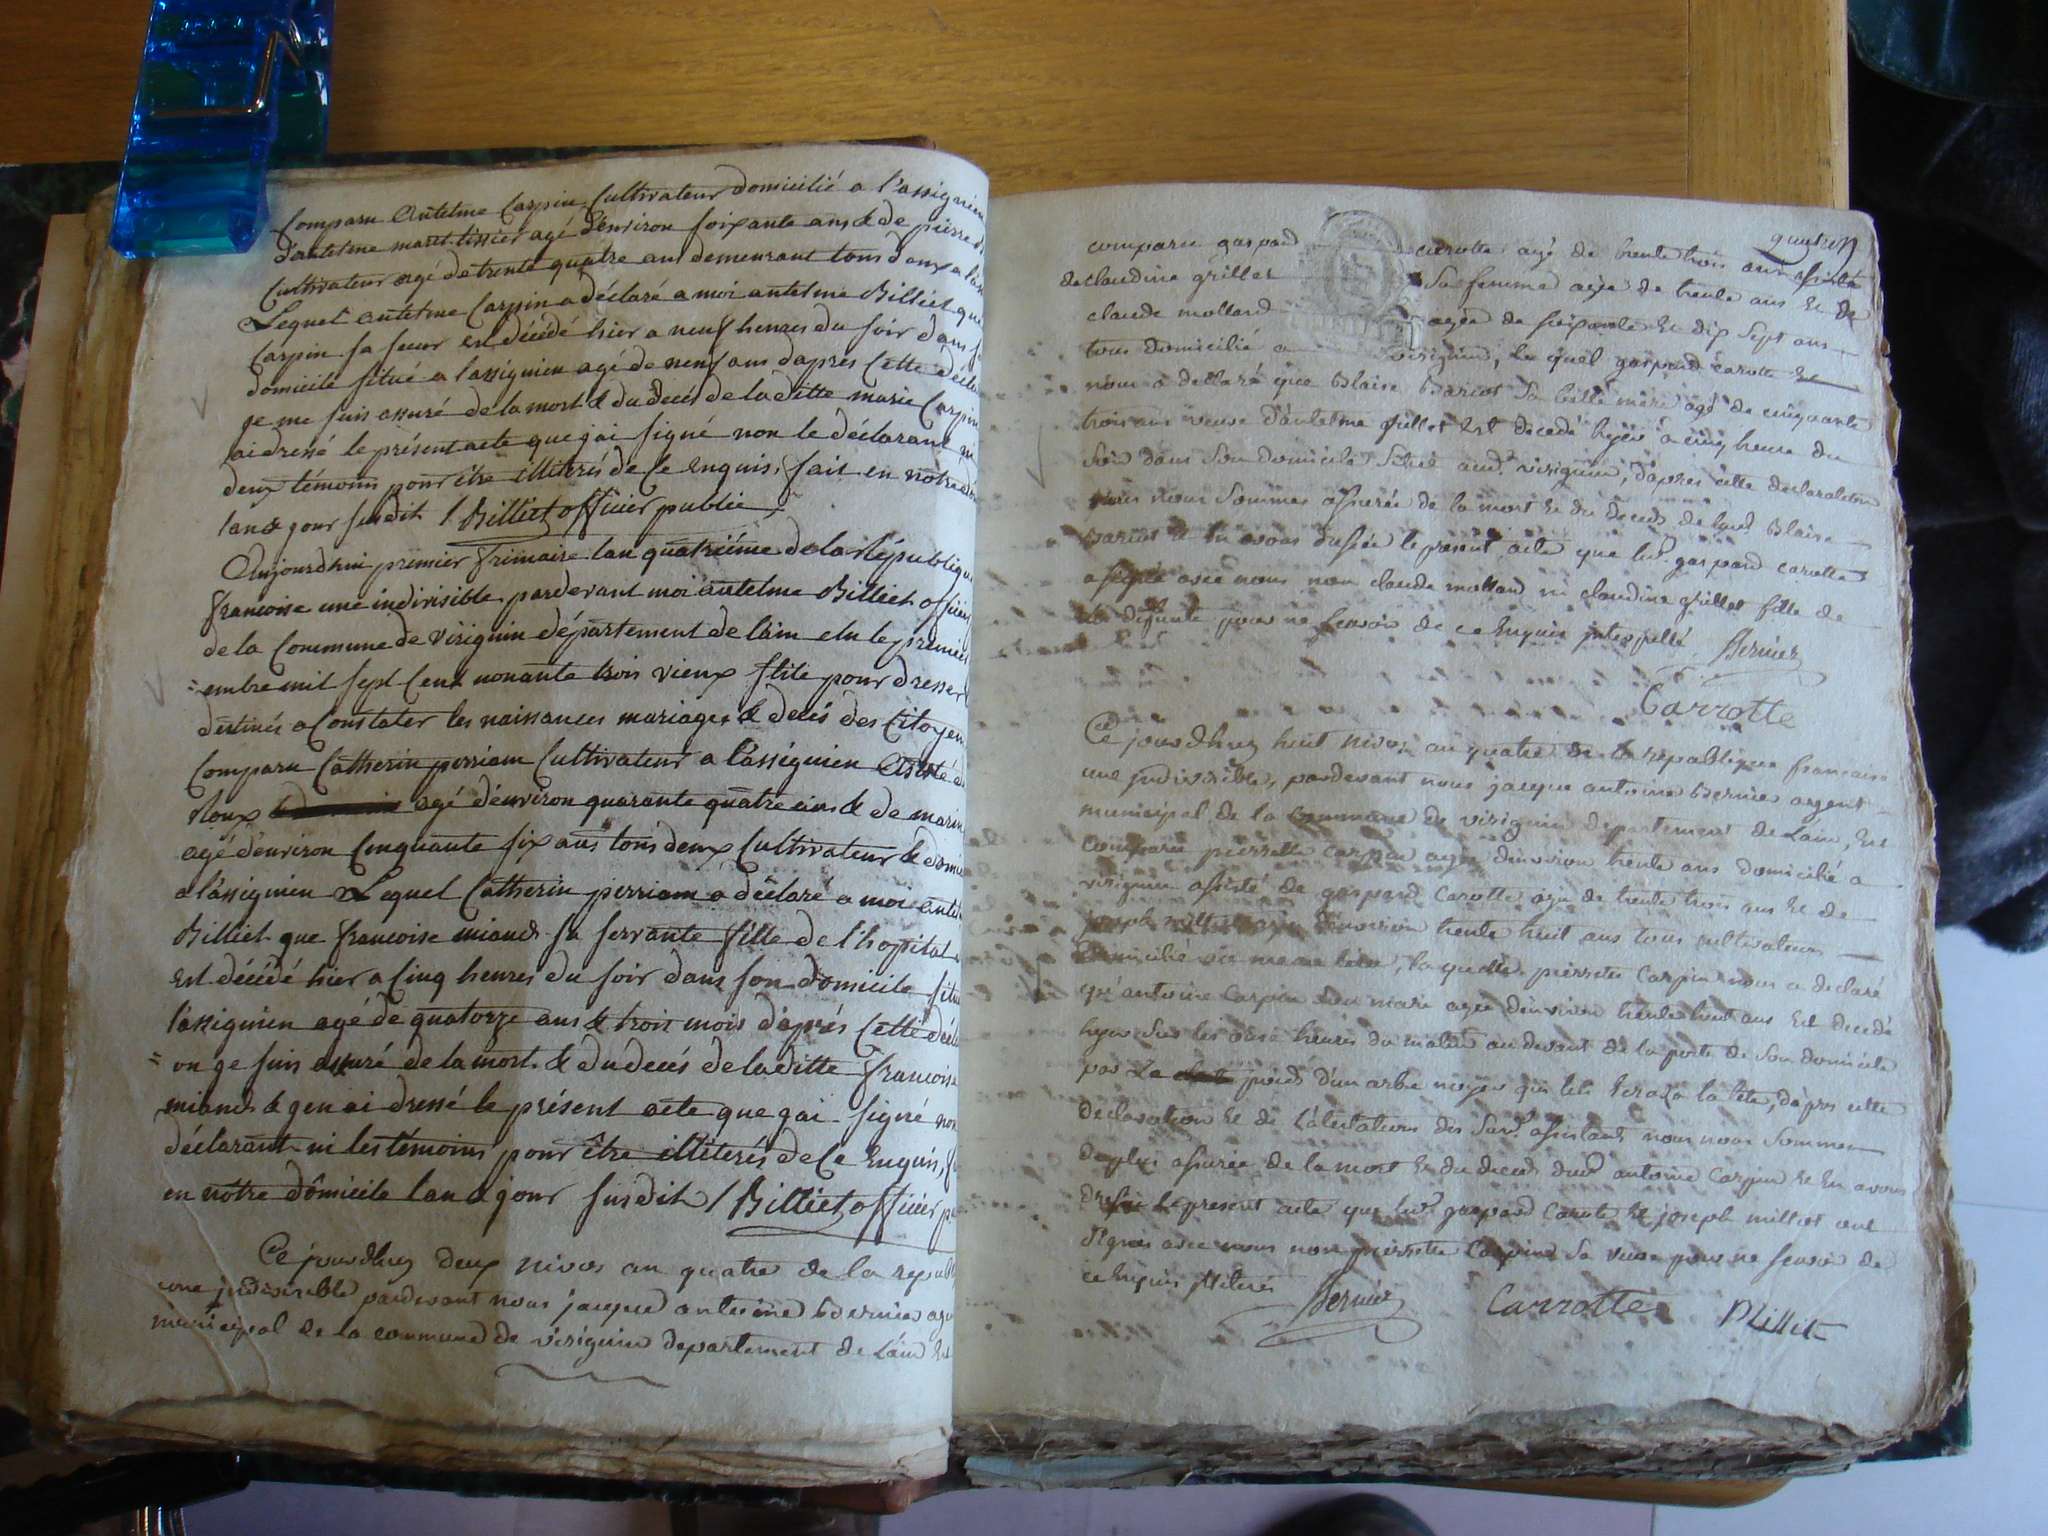 Comparu Antelme Carpin Cultivateur domicilié a l'assignieu
d'antelme maret tissier agé d'environ soixante ans & de pierre
Cultivateur agé de trente quatre ans demeurant tous deux a
Lequel antelme Carpin a déclaré a moi antelme Billiet que
Carpin sa soeur est décédé hier a neuf heures du soir dans
domicile situé a lassignieu agé de neuf ans daprès Cette
je me suis assuré de la mort & du decés de laditte marie Carpin
ai dressé le présent acte que jai signé non le déclarant ni
deux témoins pour être illiterés de Ce Enquis, fait en notre
lan & jour susdit / Billiet officier public
Aujourdhui premier frimaire lan quatriéme de la Républiq
francoise une indivisible pardevant moi antelme Billiet offici
de la Commune de virignin département de lain elu le premier
embre mil sept Cent nonante trois vieux stile pour dresser
destinés a Constater les naissances mariages & decés des Citoyen
Comparu Catherin perriam Cultivateur a lassignieu assisté
Roux agé d'environ quarante quatre ans & de marin
agé d'environ Cinquante six ans tous deux Cultivateur &
a lassignieu Lequel Catherin perriam a déclaré a moi ante
Billiet que francoise miand sa servante fille de l'hopital
Est décédé hier a Cinq heures du soir dans son domicile situ
lassignieu agé de quatorze ans & trois mois d'aprés Cette
on je suis assuré de la mort & du decés de laditte francoise
miand & jen ai dressé le présent acte que jai signé non
déclarant ni les témoins pour être illiterés de Ce Enquis,
en notre domicile lan & jour susdit / Billiet officier
Ce jourdhuy deux nivos an quatre de la repub
une jndivisible pardevant nous jacque antoine Bernier
municipal de la commune de virignin departement de Lain Est
comparu gaspard carotte agé de trente trois ans assisté
de claudine grillet Sa femme agée de trente ans Et de
claude mollard agée de soixante Et dix Sept ans
tous domicilié a virignin, le quel gaspard carotte
nous a declaré que Blaise Bariot Sa belle mere agé de cinquante
trois ans veuve d'antelme grillet Est decedé hyer a cinq heure du
soir dans Son domicile Situé aud. virignin, daprès cette declaration
nous nous Sommes assurée de la mort Et du deceds de lad. Blaise
Bariot Et En avons dressée le present acte que led. gaspard carotte
a signé avec nous non claude mollard ni claudine grillet fille de
la defunte pour ne scavoir de ce Enquis jnterpellé Bernier
Carrotte
Ce jourdhuy huit nivos an quatre de la republique francaise
une jndivisible, pardevant nous jacque antoine Bernier agent
municipal de la Commune de virignin departement de Lain, Est
comparu pierrette carpin agée denviron trente ans domicilié a
virignin assisté de gaspard carotte agé de trente trois ans Et de
joseph milliet agé denviron trente huit ans tous cultivateurs
domicilié au meme lieu, la quelle pierrette Carpin nous a declaré
qu'antoine Carpin Son mari agée denviron trente huit ans Est decedé
hyer Sur les onse heures du matin au devant de la porte de Son domicile
par Le pieds d'un arbre noyer qui lui Ecrasa la tête, dapres cette
declaration Et de Lattestations des Sud. assistants nous nous Sommes
de plus assurée de la mort Et du deceds dud. antoine Carpin Et En avons
dressé le present acte que led. gaspard Carote Et joseph milliet ont
Signés avec nous non pierrette Carpin Sa veuve pour ne scavoir de
ce Enquis jlliteré Bernier Carrotte Millit